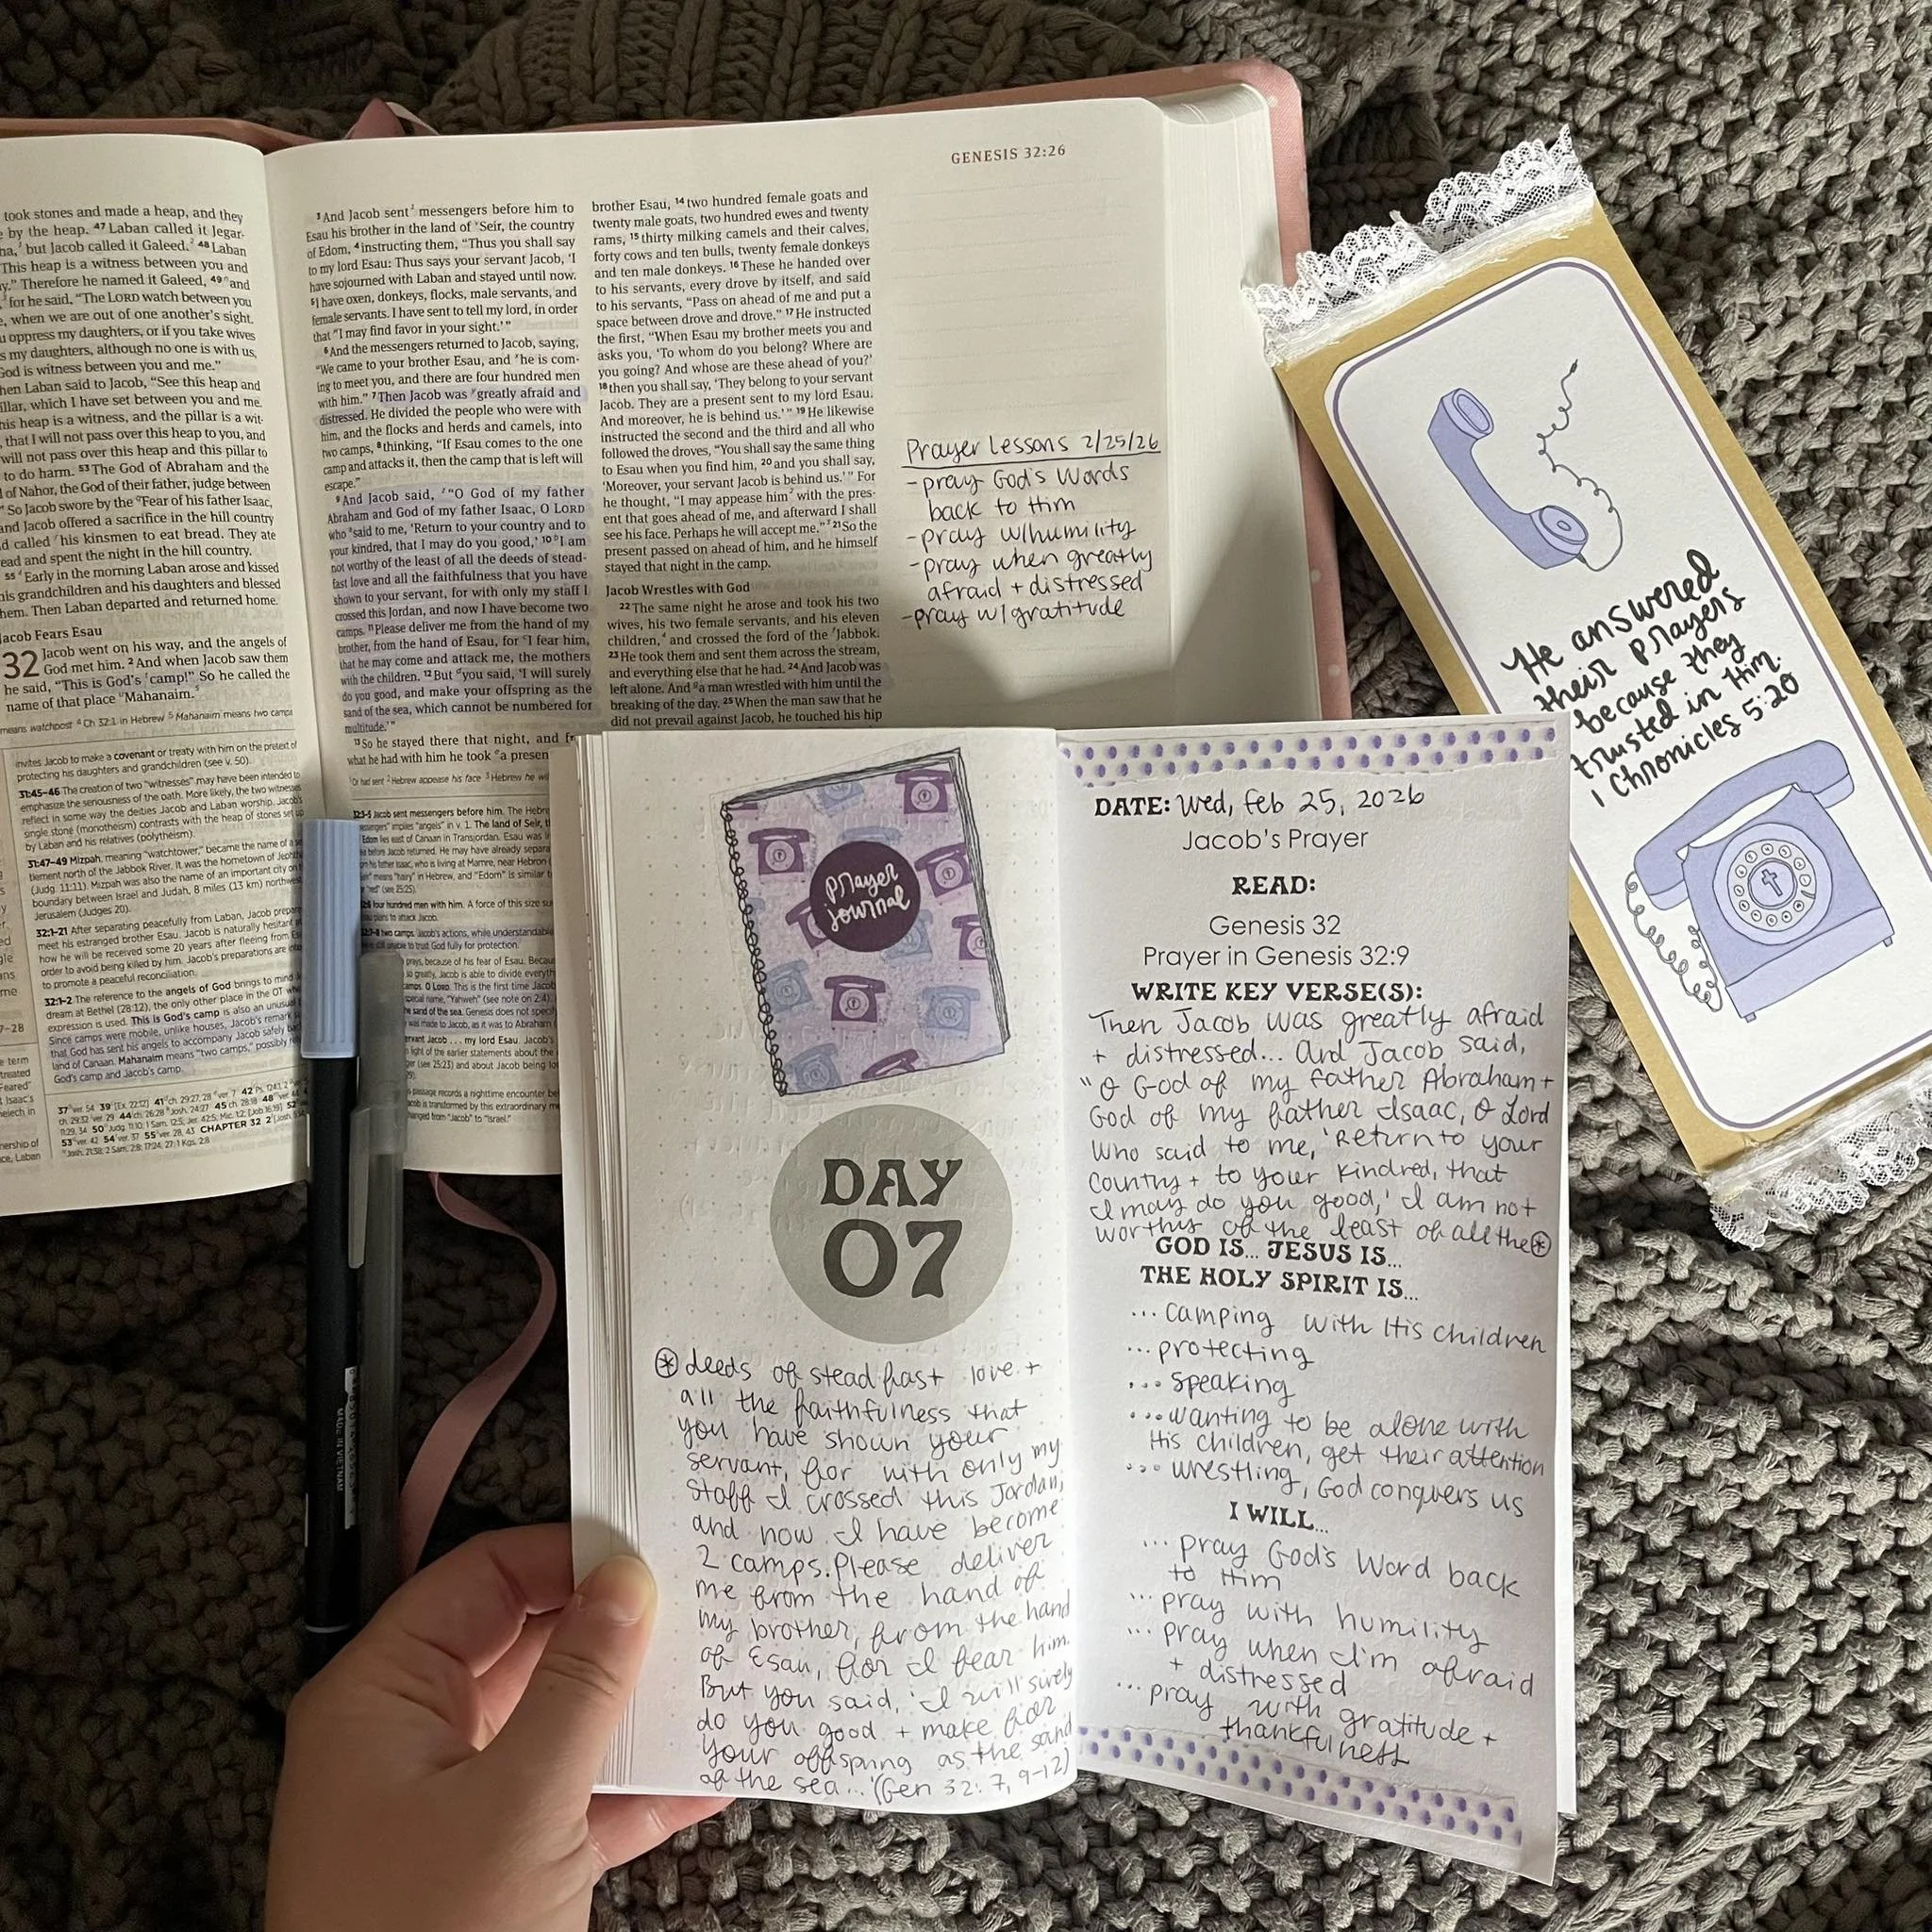 took stones and made a heap, and they
by the heap. 47 Laban called it Jegar-
but Jacob called it Galeed. 48 Laban
This heap is a witness between you and
Therefore he named it Galeed, 49 and
for he said, “The LORD watch between you
when we are out of one another's sight.
oppress my daughters, or if you take wives
my daughters, although no one is with us,
God is witness between you and me.”
Then Laban said to Jacob, “See this heap and
pillar, which I have set between you and me.
This heap is a witness, and the pillar is a wit-
that I will not pass over this heap to you, and
will not pass over this heap and this pillar to
to do harm. 53 The God of Abraham and the
of Nahor, the God of their father, judge between
So Jacob swore by the Fear of his father Isaac,
and Jacob offered a sacrifice in the hill country
called his kinsmen to eat bread. They ate
and spent the night in the hill country.
55 Early in the morning Laban arose and kissed
his grandchildren and his daughters and blessed
them. Then Laban departed and returned home.
Jacob Fears Esau
32 Jacob went on his way, and the angels of
God met him. 2 And when Jacob saw them
he said, “This is God's camp!” So he called the
name of that place Mahanaim.
means watchpost 4 Ch 32:1 in Hebrew 5 Mahanaim means two camps
invites Jacob to make a covenant or treaty with him on the pretext of
protecting his daughters and grandchildren (see v. 50).
31:45–46 The creation of two “witnesses” may have been intended to
emphasize the seriousness of the oath. More likely, the two witnesses
reflect in some way the deities Jacob and Laban worship. Jacob's
single stone (monotheism) contrasts with the heap of stones set up
by Laban and his relatives (polytheism).
31:47–49 Mizpah, meaning “watchtower,” became the name of a
tlement north of the Jabbok River. It was the hometown of
(Judg. 11:11). Mizpah was also the name of an important city on
boundary between Israel and Judah, 8 miles (13 km)
Jerusalem (Judges 20).
32:1–21 After separating peacefully from Laban, Jacob
meet his estranged brother Esau. Jacob is naturally hesitant
how he will be received some 20 years after fleeing from
order to avoid being killed by him. Jacob's preparations are
to promote a peaceful reconciliation.
32:1–2 The reference to the angels of God brings to mind
dream at Bethel (28:12), the only other place in the OT
expression is used. This is God's camp is also an unusual
Since camps were mobile, unlike houses, Jacob's remark
that God has sent his angels to accompany Jacob safely
land of Canaan. Mahanaim means “two camps,” possibly
God's camp and Jacob's camp.
GENESIS 32:26
3 And Jacob sent messengers before him to
Esau his brother in the land of Seir, the country
of Edom, 4 instructing them, “Thus you shall say
to my lord Esau: Thus says your servant Jacob, ‘I
have sojourned with Laban and stayed until now.
5 I have oxen, donkeys, flocks, male servants, and
female servants. I have sent to tell my lord, in order
that I may find favor in your sight.’”
6 And the messengers returned to Jacob, saying,
“We came to your brother Esau, and he is com-
ing to meet you, and there are four hundred men
with him.” 7 Then Jacob was greatly afraid and
distressed. He divided the people who were with
him, and the flocks and herds and camels, into
two camps, 8 thinking, “If Esau comes to the one
camp and attacks it, then the camp that is left will
escape.”
9 And Jacob said, “O God of my father
Abraham and God of my father Isaac, O LORD
who said to me, ‘Return to your country and to
your kindred, that I may do you good,’ 10 I am
not worthy of the least of all the deeds of stead-
fast love and all the faithfulness that you have
shown to your servant, for with only my staff I
crossed this Jordan, and now I have become two
camps. 11 Please deliver me from the hand of my
brother, from the hand of Esau, for I fear him,
that he may come and attack me, the mothers
with the children. 12 But you said, ‘I will surely
do you good, and make your offspring as the
sand of the sea, which cannot be numbered for
multitude.’”
13 So he stayed there that night, and
what he had with him he took a presen
brother Esau, 14 two hundred female goats and
twenty male goats, two hundred ewes and twenty
rams, 15 thirty milking camels and their calves,
forty cows and ten bulls, twenty female donkeys
and ten male donkeys. 16 These he handed over
to his servants, every drove by itself, and said
to his servants, “Pass on ahead of me and put a
space between drove and drove.” 17 He instructed
the first, “When Esau my brother meets you and
asks you, ‘To whom do you belong? Where are
you going? And whose are these ahead of you?’
18 then you shall say, ‘They belong to your servant
Jacob. They are a present sent to my lord Esau.
And moreover, he is behind us.’” 19 He likewise
instructed the second and the third and all who
followed the droves, “You shall say the same thing
to Esau when you find him, 20 and you shall say,
‘Moreover, your servant Jacob is behind us.’” For
he thought, “I may appease him with the pres-
ent that goes ahead of me, and afterward I shall
see his face. Perhaps he will accept me.” 21 So the
present passed on ahead of him, and he himself
stayed that night in the camp.
Jacob Wrestles with God
22 The same night he arose and took his two
wives, his two female servants, and his eleven
children, and crossed the ford of the Jabbok.
23 He took them and sent them across the stream,
and everything else that he had. 24 And Jacob was
left alone. And a man wrestled with him until the
breaking of the day. 25 When the man saw that he
did not prevail against Jacob, he touched his hip
Prayer Lessons 2/25/26
- pray God's Words
back to Him
- pray w/humility
- pray when greatly
afraid + distressed
- pray w/ gratitude
He answered
their prayers
because they
trusted in Him.
1 Chronicles 5:20
prayer
journal
DAY
07
⊛ deeds of steadfast love +
all the faithfulness that
you have shown your
servant, for with only my
staff I crossed this Jordan,
and now I have become
2 camps. Please deliver
me from the hand of
my brother, from the hand
of Esau, for I fear him.
But you said, 'I will surely
do you good + make for
your offspring as the sand
of the sea...' (Gen 32: 7, 9-12)
DATE: Wed, Feb 25, 2026
Jacob's Prayer
READ:
Genesis 32
Prayer in Genesis 32:9
WRITE KEY VERSE(S):
Then Jacob was greatly afraid
+ distressed... And Jacob said,
"O God of my father Abraham +
God of my father Isaac, O Lord
Who said to me, 'Return to your
Country + to your kindred, that
I may do you good,' I am not
worthy of the least of all the ⊛
GOD IS... JESUS IS...
THE HOLY SPIRIT IS...
... camping with His children
... protecting
... speaking
... wanting to be alone with
His children, get their attention
... wrestling, God conquers us
I WILL...
... pray God's Word back
to Him
... pray with humility
... pray when I'm afraid
+ distressed
... pray with gratitude +
thankfulness
MADE IN VIETNAM